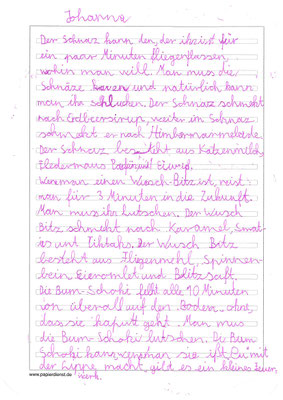 Johanna
Der Schnaz kann den, der ihn isst für
ein paar Minuten fliegen lassen,
wohin man will. Man muss die
Schnäze kauen und natürlich kann
man ihn schlucken. Der Schnaz schmekt
nach Erdbeersirup, weiter im Schnaz
schmekt er nach Himbermarmelade.
Der Schnaz besteht aus Katzenmilch,
Fledermaus und Eiweis.
Wenn man einen Wusch-Bitz ist, reist
man für 3 Minuten in die Zukunft.
Man mus ihn lutschen. Der Wusch
Bitz schmeckt nach Karamel, Smat-
is und Tiktaks. Der Wusch Bitz
besteht aus Fligenmehl, Spinnen-
bein Eieromlet und Blitzsaft.
Die Bum-Schoki fellt alle 10 Minuten
von überall auf den Boden, ohne,
dass sie kaputt geht. Man mus
die Bum-Schoki lutschen. Die Bum
Schoki kann, wenn man sie ist Pu mit
der Lippe macht, gibt es ein kleines Feuer
werk.
www.papierdienst.de